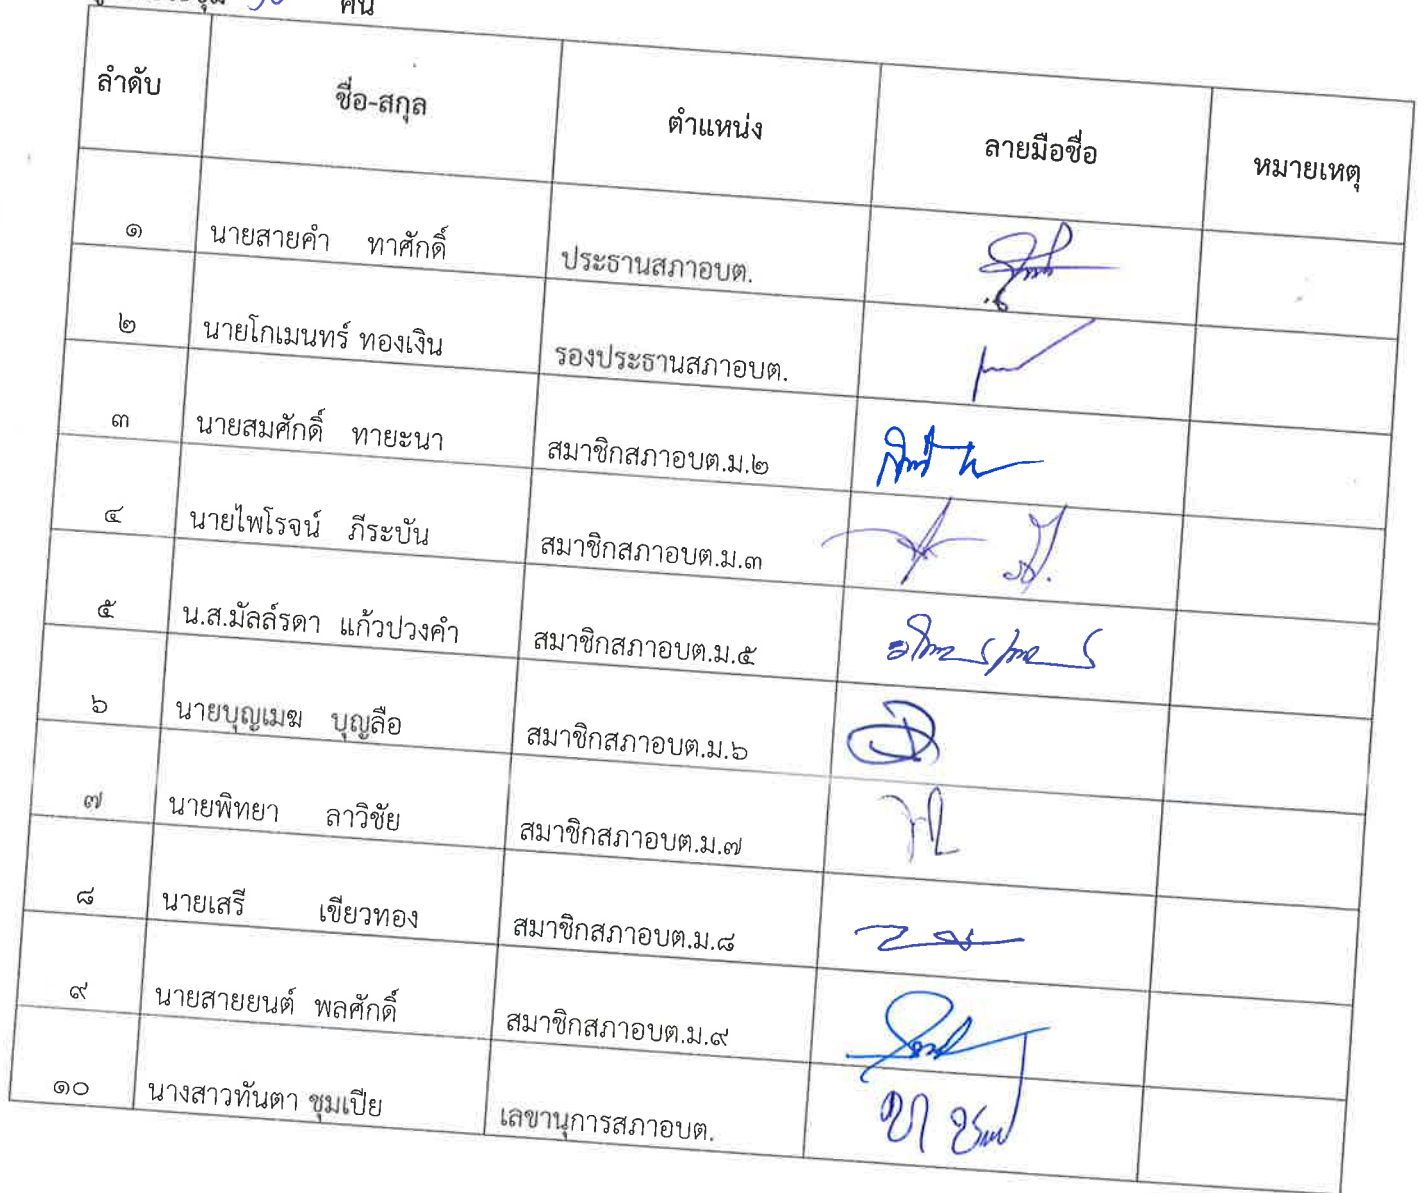 คน
ลำดับ ชื่อ-สกุล ตำแหน่ง ลายมือชื่อ หมายเหตุ
๑ นายสายคำ ทาศักดิ์ ประธานสภาอบต.
๒ นายโกเมนทร์ ทองเงิน รองประธานสภาอบต.
๓ นายสมศักดิ์ ทายะนา สมาชิกสภาอบต.ม.๒
๔ นายไพโรจน์ ภีระบัน สมาชิกสภาอบต.ม.๓
๕ น.ส.มัลล์รดา แก้วปวงคำ สมาชิกสภาอบต.ม.๕
๖ นายบุญเมฆ บุญลือ สมาชิกสภาอบต.ม.๖
๗ นายพิทยา ลาวิชัย สมาชิกสภาอบต.ม.๗
๘ นายเสรี เขียวทอง สมาชิกสภาอบต.ม.๘
๙ นายสายยนต์ พลศักดิ์ สมาชิกสภาอบต.ม.๙
๑๐ นางสาวทันตา ชุมเปีย เลขานุการสภาอบต.